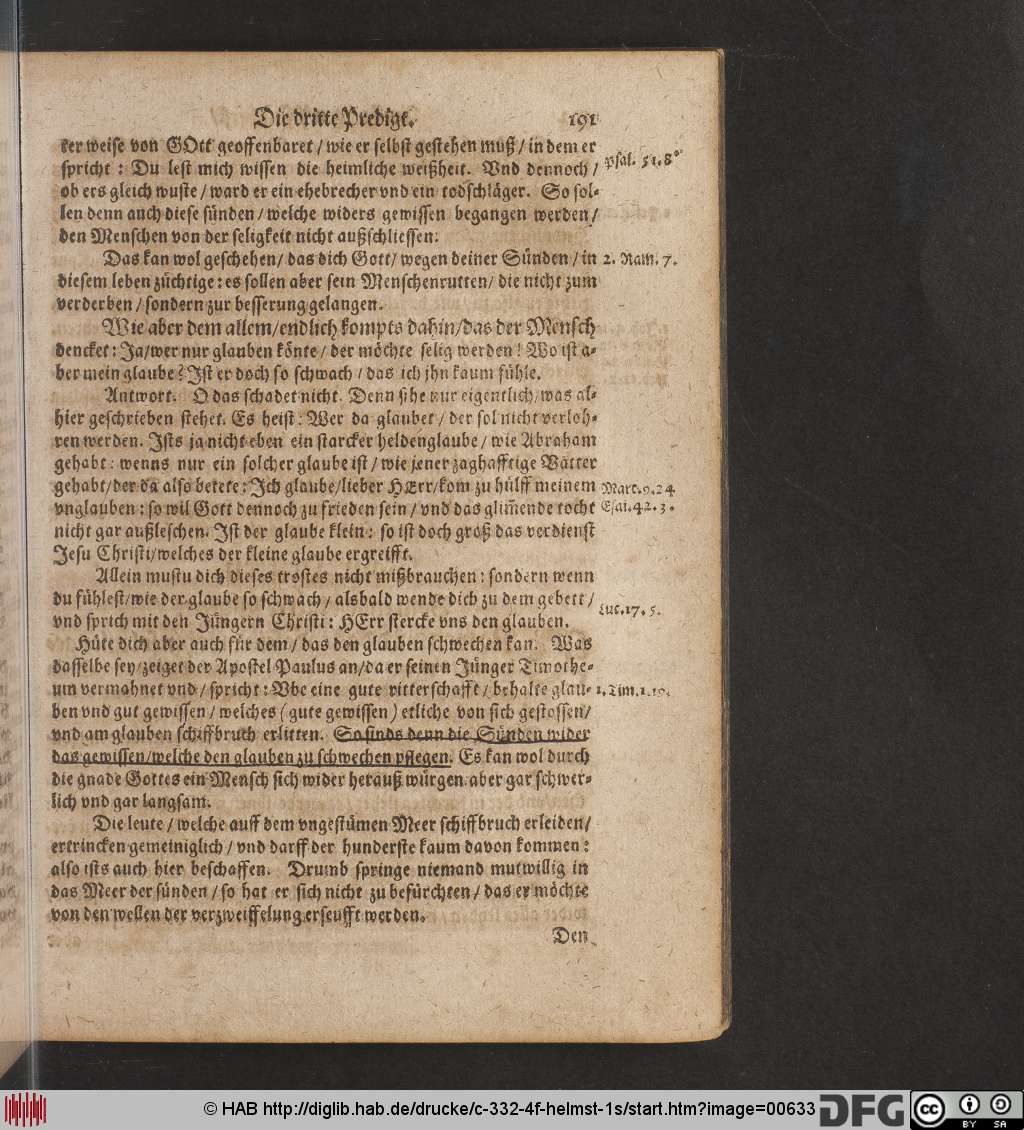 Die dritte Predigt. 191
ter weise von GOtt geoffenbaret / wie er selbst gestehen muß / in dem er
spricht : Du lest mich wissen die heimliche weißheit. Vnd dennoch / psal. 51. 8.
ob ers gleich wuste / ward er ein ehebrecher vnd ein todschläger. So sol-
len denn auch diese sünden / welche widers gewissen begangen werden /
den Menschen von der seligkeit nicht außschliessen.
Das kan wol geschehen / das dich Gott / wegen deiner Sünden / in 2. Kam. 7.
diesem leben züchtige : es sollen aber sein Menschenrutten / die nicht zum
verderben / sondern zur besserung gelangen.
Wie aber dem allem / endlich kompts dahin / das der Mensch
dencket : Ja / wer nur glauben könte / der möchte selig werden ! Wo ist a-
ber mein glaube ? Ist er doch so schwach / das ich jhn kaum fühle.
Antwort. O das schadet nicht. Denn sihe nur eigentlich / was al-
hier geschrieben stehet. Es heist : Wer da glaubet / der sol nicht verloh-
ren werden. Ists ja nicht eben ein starcker heldenglaube / wie Abraham
gehabt : wenns nur ein solcher glaube ist / wie jener zaghafftige Vatter
gehabt / der da also betete : Ich glaube / lieber HErr / kom zu hülff meinem Marc. 9. 24
vnglauben : so wil Gott dennoch zu frieden sein / vnd das glim̃ende tocht Esai. 42. 3.
nicht gar außleschen. Ist der glaube klein : so ist doch groß das verdienst
Jesu Christi / welches der kleine glaube ergreifft.
Allein mustu dich dieses trostes nicht mißbrauchen : sondern wenn
du fühlest / wie der glaube so schwach / alsbald wende dich zu dem gebett / Luc. 17. 5.
vnd sprich mit den Jüngern Christi : HErr stercke vns den glauben.
Hüte dich aber auch für dem / das den glauben schwechen kan. Was
dasselbe sey / zeiget der Apostel Paulus an / da er seinen Jünger Timothe-
um vermahnet vnd / spricht : Vbe eine gute ritterschafft / behalte glau- 1. Tim. 1. 19.
ben vnd gut gewissen / welches ( gute gewissen ) etliche von sich gestossen /
vnd am glauben schiffbruch erlitten. So sinds denn die Sünden wider
das gewissen / welche den glauben zu schwechen pflegen. Es kan wol durch
die gnade Gottes ein Mensch sich wider herauß würgen: aber gar schwer-
lich vnd gar langsam.
Die leute / welche auff dem vngestümen Meer schiffbruch erleiden /
ertrincken gemeiniglich / vnd darff der hunderste kaum davon kommen :
also ists auch hier beschaffen. Drumb springe niemand mutwillig in
das Meer der sünden / so hat er sich nicht zu befürchten / das er möchte
von den wellen der verzweiffelung erseufft werden.
Den
© HAB http://diglib.hab.de/drucke/c-332-4f-helmst-1s/start.htm?image=00633 DFG cc BY SA